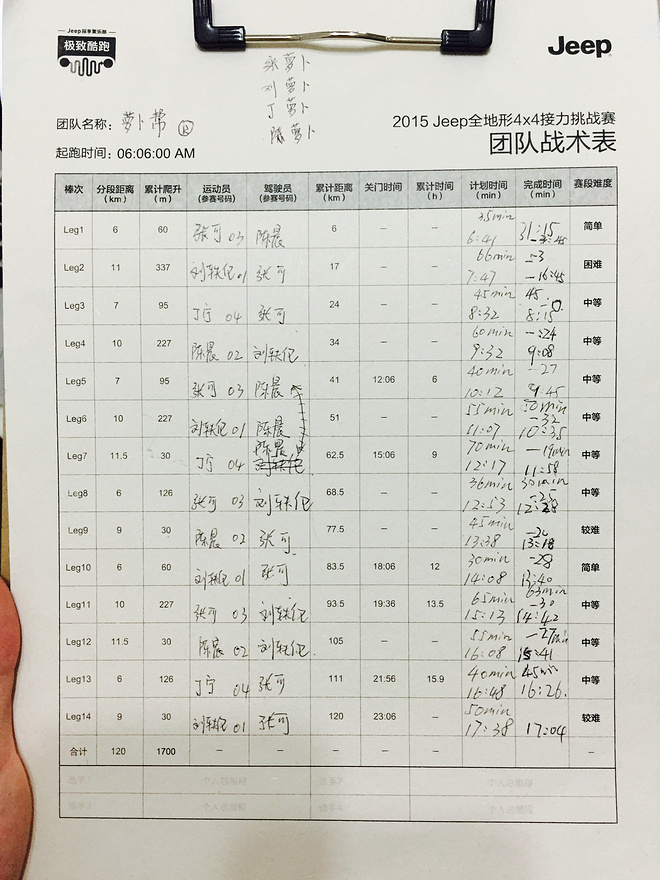 Jeep探享聚乐部
极致酷跑
Jeep
张萝卜
刘萝卜
丁萝卜
陈萝卜
团队名称: 萝卜帮
2015 Jeep全地形4x4接力挑战赛
起跑时间: 06:06:00 AM
团队战术表
棒次 分段距离(km) 累计爬升(m) 运动员(参赛号码) 驾驶员(参赛号码) 累计距离(km) 关门时间 累计时间(h) 计划时间(min) 完成时间(min) 赛段难度
Leg1 6 60 张可 03 陈晨 6 – – 35min 6:41 31:15 简单
Leg2 11 337 刘轶伦 01 张可 17 – – 66min 7:47 -53 -16:45 困难
Leg3 7 95 丁宁 04 张可 24 – – 45min 8:32 45 8:15 中等
Leg4 10 227 陈晨 02 刘轶伦 34 – – 60min 9:32 -:24 9:08 中等
Leg5 7 95 张可 03 陈晨 41 12:06 6 40min 10:12 -27 9:45 中等
Leg6 10 227 刘轶伦 01 陈晨 51 – – 55min 11:07 50min -32 10:35 中等
Leg7 11.5 30 丁宁 04 陈晨 62.5 15:06 9 70min 12:17 -19min 11:58 中等
Leg8 6 126 张可 03 刘轶伦 68.5 – – 36min 12:53 30min -25 12:28 中等
Leg9 9 30 陈晨 02 张可 77.5 – – 45min 13:38 -20 13:18 较难
Leg10 6 60 刘轶伦 01 张可 83.5 18:06 12 30min 14:08 -28 13:40 简单
Leg11 10 227 张可 03 刘轶伦 93.5 19:36 13.5 65min 15:13 63min -30 14:42 中等
Leg12 11.5 30 陈晨 02 刘轶伦 105 – – 55min 16:08 -27min 15:41 中等
Leg13 6 126 丁宁 04 张可 111 21:56 15.9 40min 16:48 45min 16:26 中等
Leg14 9 30 刘轶伦 01 张可 120 23:06 – 50min 17:38 17:04 较难
合计 120 1700 – – – – – – – –